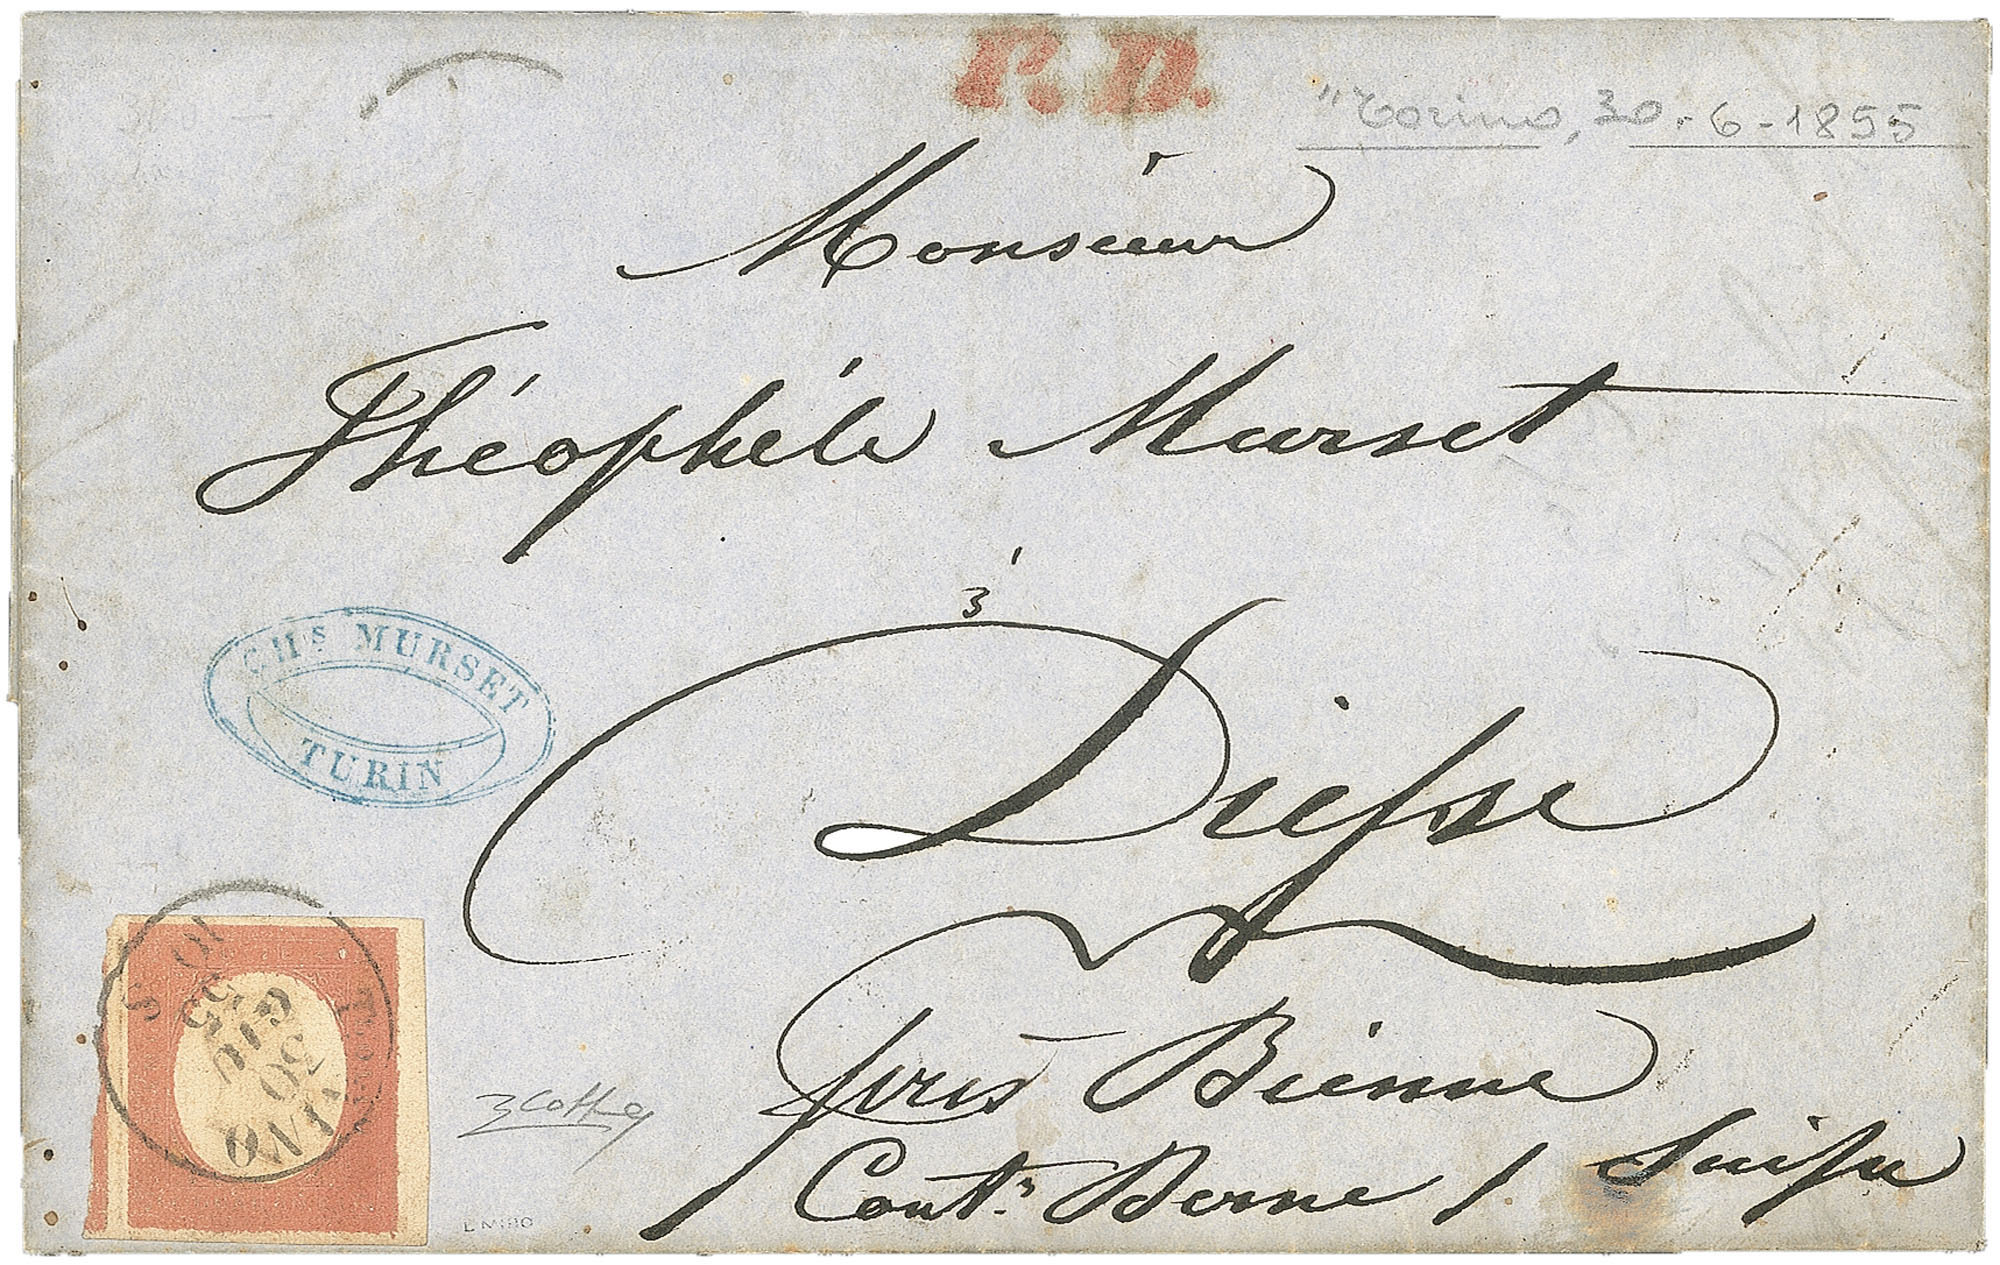 P.D.
"Torino, 30.-6-1855
Monsieur
Théophile Murset
à
Diesse
près Bienne
Cont. Berne / Suisse
CHs MURSET
TURIN
TORINO
30
GIU
55
10 S
E DIENA